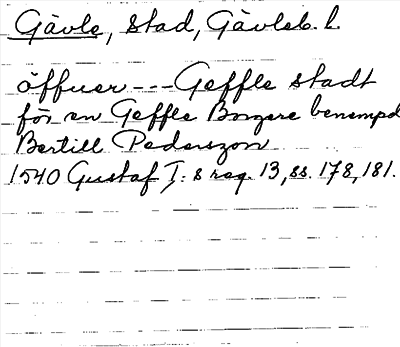 Gävle, stad, Gävleb. l.
öffuer --- Geffle stadt
för en Geffle Borgere benempd
Bertill Pederszon
1540 Gustaf I:s reg. 13, ss. 178, 181.